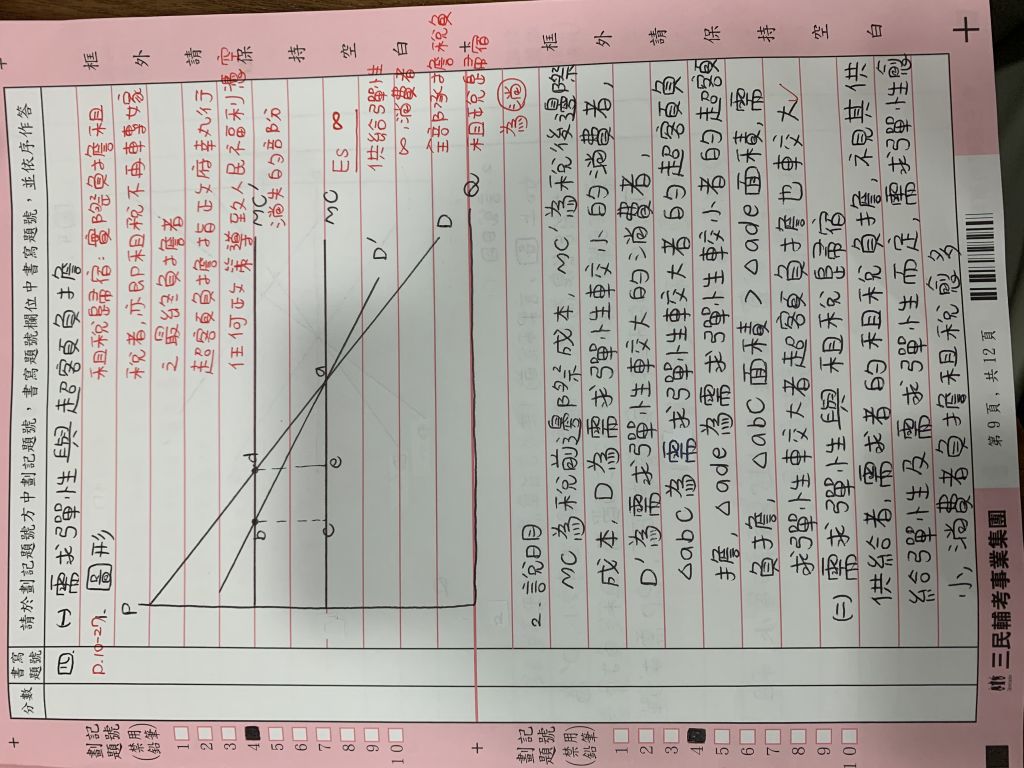 框 外 請 保 持 空 白
框 外 請 保 持 空 白
請於劃記題號方中劃記題號，書寫題號欄位中書寫題號，並依序作答
分數
書寫題號
四.
(一) 需求彈性與超額負擔
P.10-27
1. 圖形
租稅歸宿：實際負擔租
稅者，亦即租稅不再轉嫁
之最終負擔者
超額負擔指政府執行
任何政策導致人民福利憑空
消失的部份
P
MC'
MC
b
d
c
e
a
D'
D
Q
Es ∞
供給彈性
∞，消費者
全部承擔稅負
租稅歸宿
為消
2. 說明
MC 為稅前邊際成本，MC' 為稅後邊際
成本，D 為需求彈性較小的消費者，
D' 為需求彈性較大的消費者，
△abc 為需求彈性較大者的超額負
擔，△ade 為需求彈性較小者的超額
負擔，△abc 面積 > △ade 面積，需
求彈性較大者超額負擔也較大✓
(二) 需求彈性與租稅歸宿
供給者，需求者的租稅負擔，視其供
給彈性及需求彈性而定，需求彈性愈
小，消費者負擔租稅愈多
劃記題號
(禁用鉛筆)
1
2
3
4
5
6
7
8
9
10
劃記題號
(禁用鉛筆)
1
2
3
4
5
6
7
8
9
10
三民輔考事業集團
第 9 頁，共 12 頁